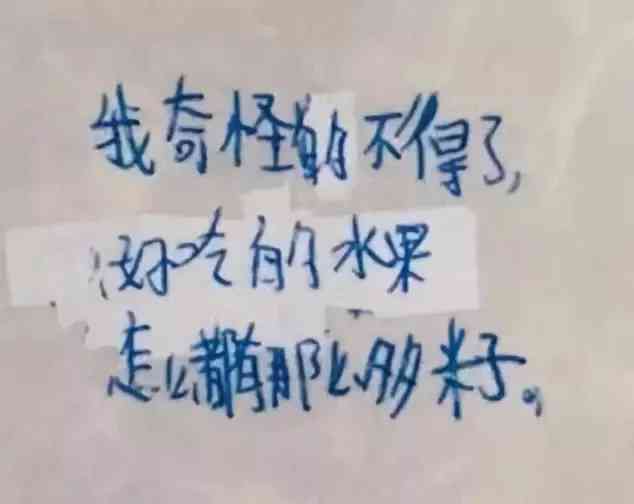 我奇怪的不得了，
好吃的水果
怎么都有那么多米子。